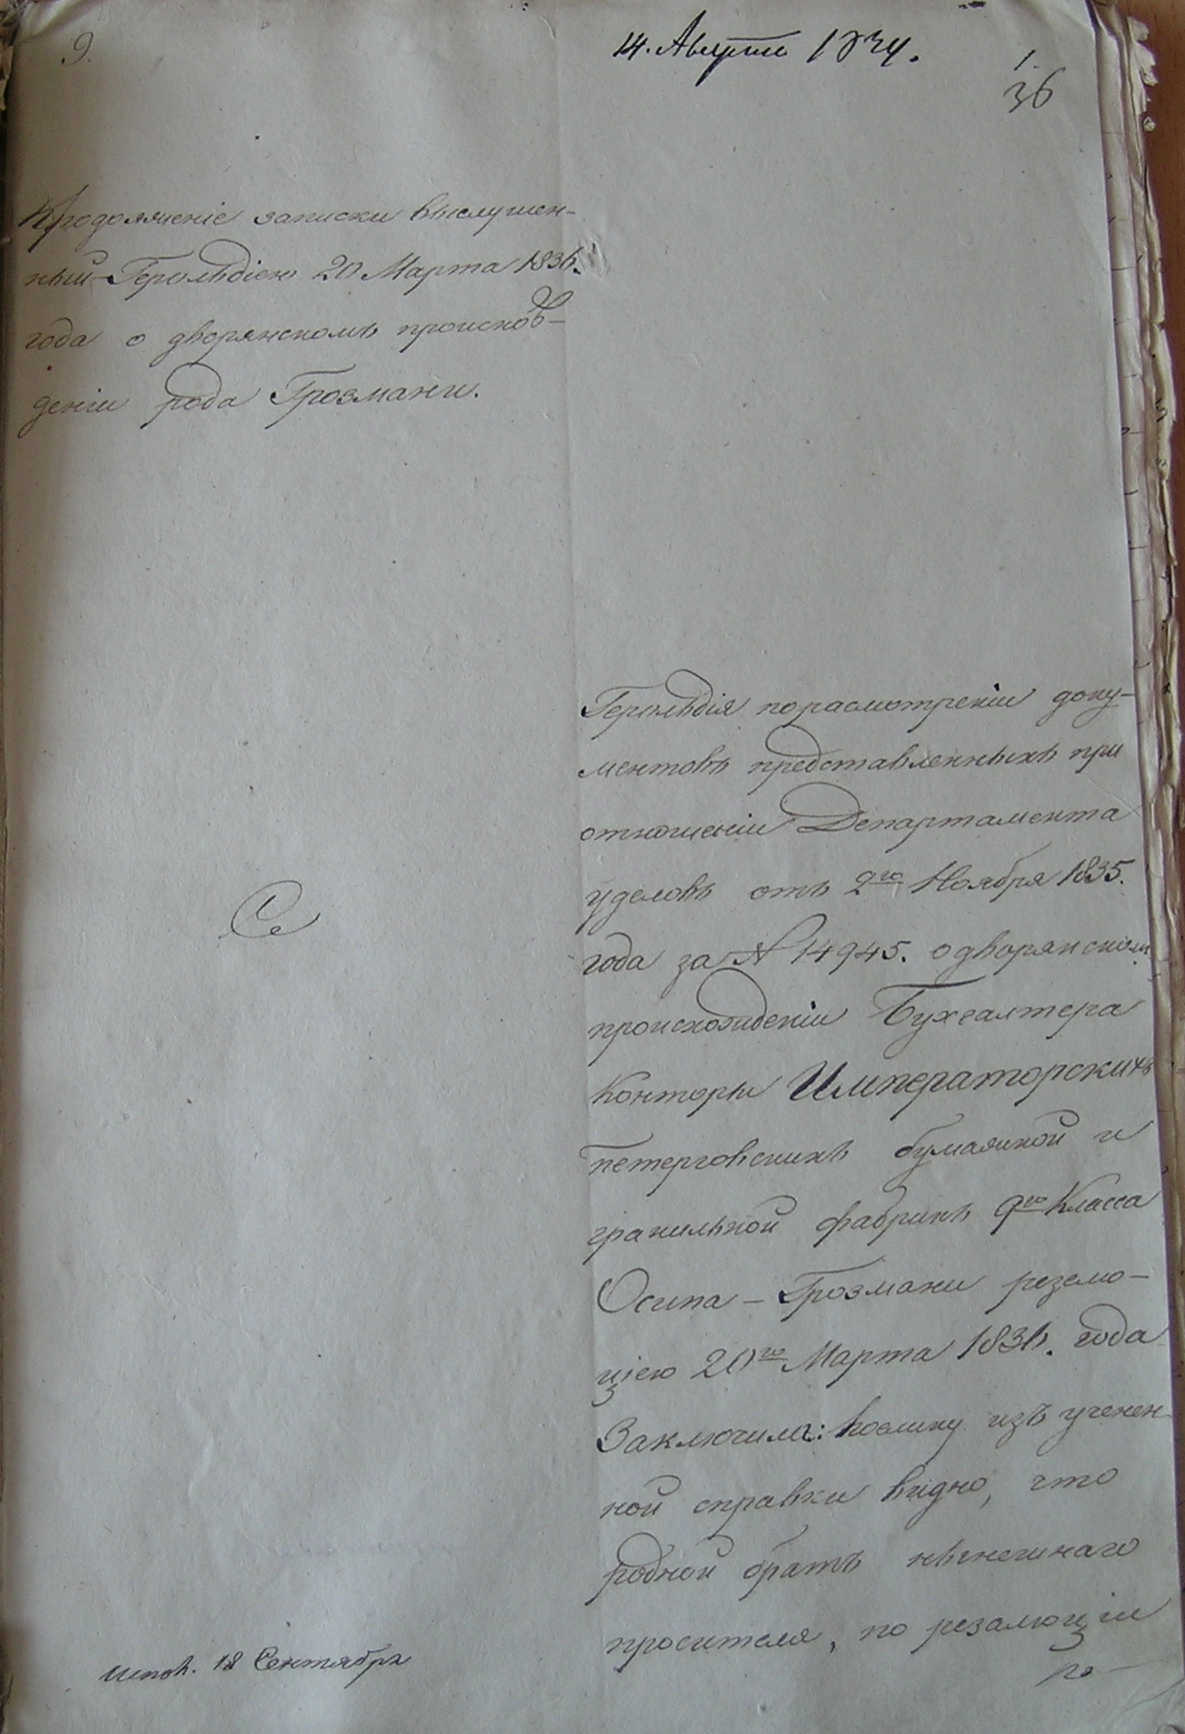 9.
14. Августа 1834.
1.
36
Продолженіе записки выслушен-
ный Герольдіею 20 Марта 1836.
года о дворянскомъ происхож-
деніи рода Грозмани.
Герольдія порасмотреніи доку-
ментовъ представленныхъ при
отношеніи Департамента
уделовъ отъ 2го Ноября 1835.
года за № 14945. о дворянскомъ
происхожденіи Бухгалтера
Конторы Императорскихъ
Петерговскихъ бумажной и
гранильной фабрикъ 9го Класса
Осипа Грозмани резолю-
ціею 20го Марта 1836. года
Заключила: поелику изъ ученен-
ной справки видно, что
родной братъ нынешнаго
просителя, по резалюціи
Испол. 18 Сентября